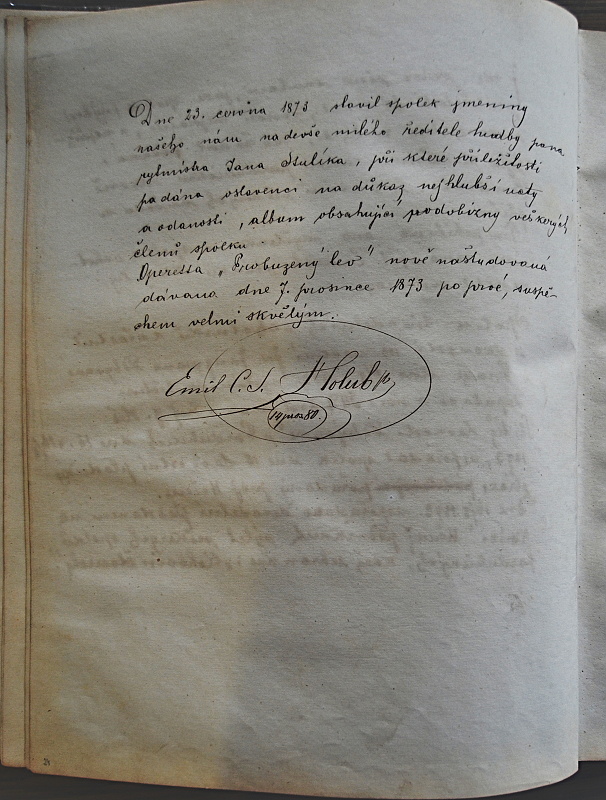 Dne 23. června 1873 slavil spolek jmeniny
našeho nám nadevše milého ředitele hudby pana
rytmistra Jana Stulíka, při které příležitosti
podána oslavenci na důkaz nejhlubší ucty
a oddanosti, album obsahující podobizny veškerých
členů spolku.
Operetta „Probuzený lev" nově naštudovaná
dávana dne 7. prosince 1873 po prvé, s uspě-
chem velmi skvělým.
Emil C. J. Holub
80.